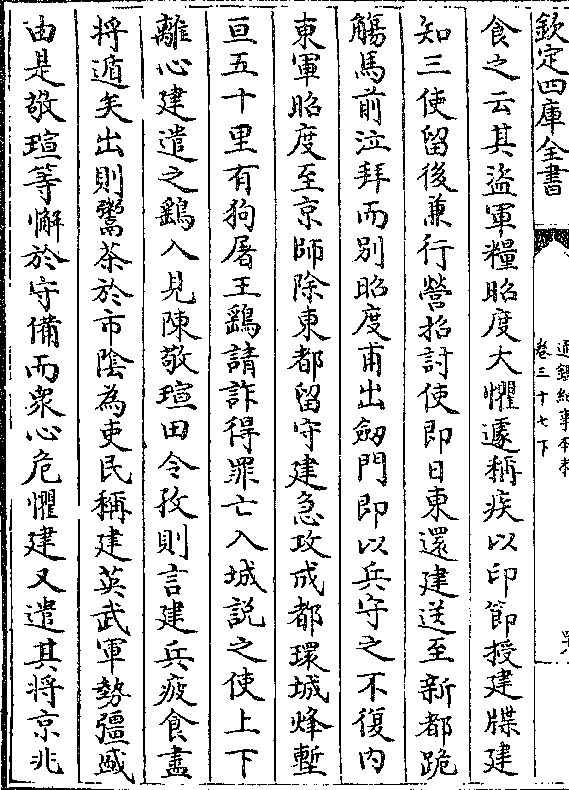 欽定四庫全書
通鑑紀事本末
卷三十七下
食之云其盜軍糧昭度大懼遽稱疾以印節授建牒建
知三使留後兼行營招討使即日東還建送至新都跪
觴馬前泣拜而別昭度甫出劒門即以兵守之不復内
東軍昭度至京師除東都留守建急攻成都環城烽塹
亘五十里有狗屠王鷂請詐得罪亡入城説之使上下
離心建遣之鷂入見陳敬瑄田令孜則言建兵疲食盡
將遁矣出則鬻茶於市隂為吏民稱建英武軍勢彊盛
由是敬瑄等懈於守備而衆心危懼建又遣其將京兆